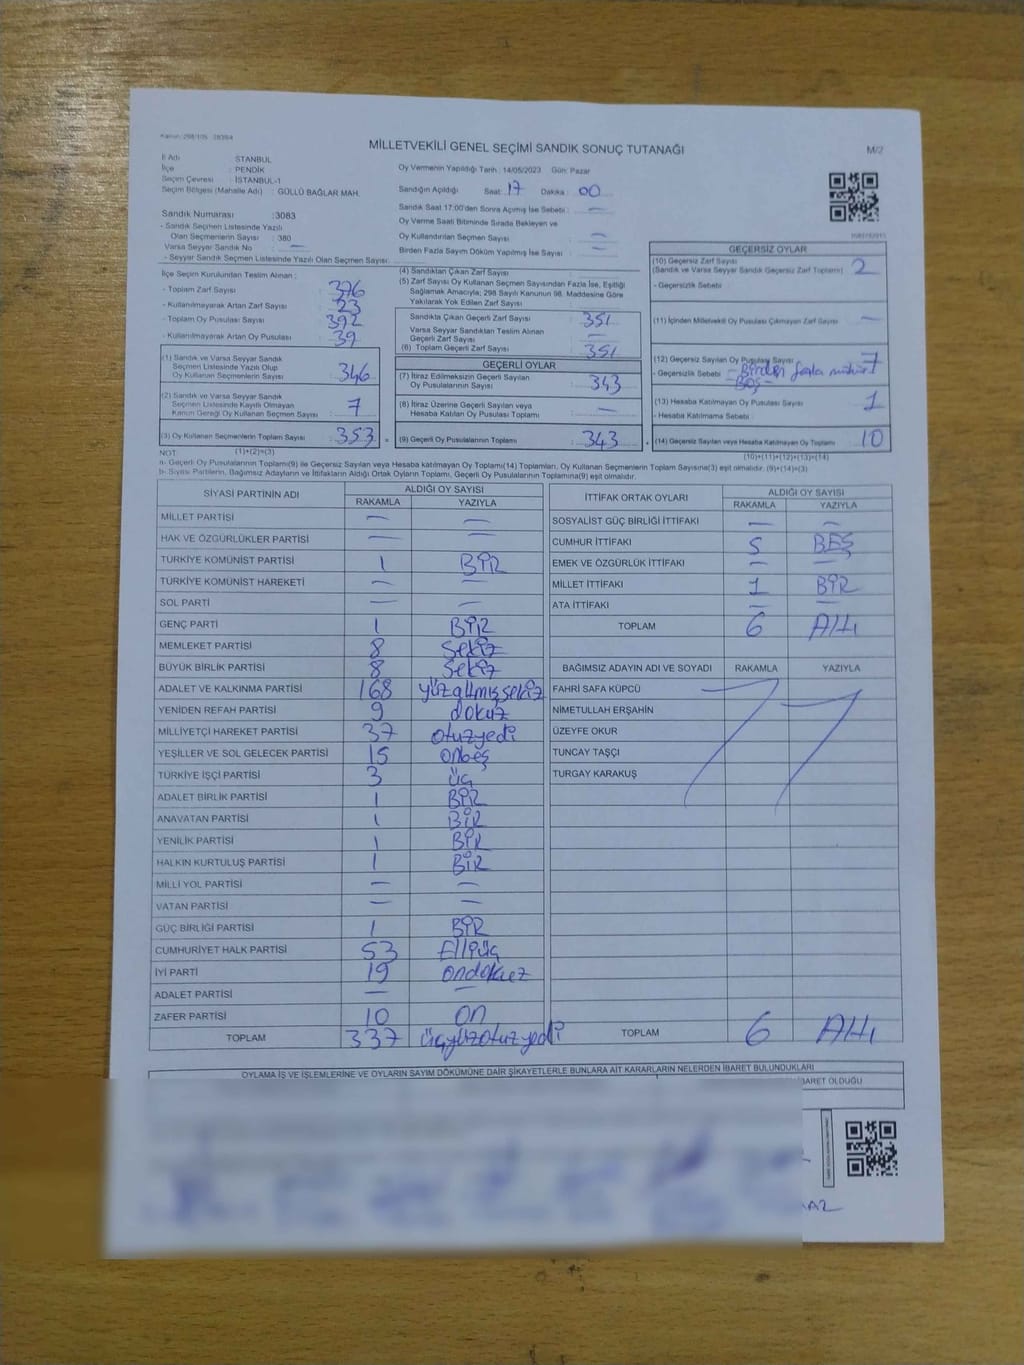 MİLLETVEKİLİ GENEL SEÇİMİ SANDIK SONUÇ TUTANAĞI
M/2
İl Adı : İSTANBUL
İlçe : PENDİK
Seçim Çevresi : İSTANBUL-1
Seçim Bölgesi (Mahalle Adı) : GÜLLÜ BAĞLAR MAH.
Oy Vermenin Yapıldığı Tarih : 14/05/2023 Gün: Pazar
Sandığın Açıldığı Saat: 17 Dakika : 00
Sandık Saat 17:00'den Sonra Açımış İse Sebebi : —
Oy Verme Saati Bitiminde Sırada Bekleyen ve
Oy Kullandırılan Seçmen Sayısı : —
Birden Fazla Sayım Döküm Yapılmış İse Sayısı : —
Sandık Numarası : 3083
- Sandık Seçmen Listesinde Yazılı
Olan Seçmenlerin Sayısı : 380
Varsa Seyyar Sandık No : —
- Seyyar Sandık Seçmen Listesinde Yazılı Olan Seçmen Sayısı:
İlçe Seçim Kurulundan Teslim Alınan :
- Toplam Zarf Sayısı : 376
- Kullanılmayarak Artan Zarf Sayısı : 23
- Toplam Oy Pusulası Sayısı : 392
- Kullanılmayarak Artan Oy Pusulası : 39
(1) Sandık ve Varsa Seyyar Sandık
Seçmen Listesinde Yazılı Olup
Oy Kullanan Seçmenlerin Sayısı : 346
(2) Sandık ve Varsa Seyyar Sandık
Seçmen Listesinde Kayıtlı Olmayan
Kanun Gereği Oy Kullanan Seçmen Sayısı : 7
(3) Oy Kullanan Seçmenlerin Toplam Sayısı : 353
(1)+(2)=(3)
(4) Sandıktan Çıkan Zarf Sayısı : —
(5) Zarf Sayısı Oy Kullanan Seçmen Sayısından Fazla İse, Eşitliği
Sağlamak Amacıyla; 298 Sayılı Kanunun 98. Maddesine Göre
Yakılarak Yok Edilen Zarf Sayısı : —
Sandıkta Çıkan Geçerli Zarf Sayısı : 351
Varsa Seyyar Sandıktan Teslim Alınan
Geçerli Zarf Sayısı : —
(6) Toplam Geçerli Zarf Sayısı : 351
GEÇERLİ OYLAR
(7) İtiraz Edilmeksizin Geçerli Sayılan
Oy Pusulalarının Sayısı : 343
(8) İtiraz Üzerine Geçerli Sayılan veya
Hesaba Katılan Oy Pusulası Toplamı : —
(9) Geçerli Oy Pusulalarının Toplamı : 343
GEÇERSİZ OYLAR
(10) Geçersiz Zarf Sayısı : 2
(Sandık ve Varsa Seyyar Sandık Geçersiz Zarf Toplamı)
- Geçersizlik Sebebi :
(11) İçinden Milletvekili Oy Pusulası Çıkmayan Zarf Sayısı : —
(12) Geçersiz Sayılan Oy Pusulası Sayısı : 7
- Geçersizlik Sebebi : - Birden fazla mühür
- Boş -
(13) Hesaba Katılmayan Oy Pusulası Sayısı : 1
- Hesaba Katılmama Sebebi :
(14) Geçersiz Sayılan veya Hesaba Katılmayan Oy Toplamı : 10
(10)+(11)+(12)+(13)=(14)
NOT:
a- Geçerli Oy Pusulalarının Toplamı(9) ile Geçersiz Sayılan veya Hesaba katılmayan Oy Toplamı(14) Toplamları, Oy Kullanan Seçmenlerin Toplam Sayısına(3) eşit olmalıdır. (9)+(14)=(3)
b- Siyasi Partilerin, Bağımsız Adayların ve İttifakların Aldığı Ortak Oyların Toplamı, Geçerli Oy Pusulalarının Toplamına(9) eşit olmalıdır.
SİYASİ PARTİNİN ADI ALDIĞI OY SAYISI
RAKAMLA YAZIYLA
MİLLET PARTİSİ — —
HAK VE ÖZGÜRLÜKLER PARTİSİ — —
TÜRKİYE KOMÜNİST PARTİSİ 1 BİR
TÜRKİYE KOMÜNİST HAREKETİ — —
SOL PARTİ — —
GENÇ PARTİ 1 BİR
MEMLEKET PARTİSİ 8 Sekiz
BÜYÜK BİRLİK PARTİSİ 8 Sekiz
ADALET VE KALKINMA PARTİSİ 168 yüzaltmışsekiz
YENİDEN REFAH PARTİSİ 9 dokuz
MİLLİYETÇİ HAREKET PARTİSİ 37 otuzyedi
YEŞİLLER VE SOL GELECEK PARTİSİ 15 onbeş
TÜRKİYE İŞÇİ PARTİSİ 3 üç
ADALET BİRLİK PARTİSİ 1 BİR
ANAVATAN PARTİSİ 1 BİR
YENİLİK PARTİSİ 1 BİR
HALKIN KURTULUŞ PARTİSİ 1 BİR
MİLLİ YOL PARTİSİ — —
VATAN PARTİSİ — —
GÜÇ BİRLİĞİ PARTİSİ 1 BİR
CUMHURİYET HALK PARTİSİ 53 Elliüç
İYİ PARTİ 19 ondokuz
ADALET PARTİSİ — —
ZAFER PARTİSİ 10 on
TOPLAM 337 üçyüzotuzyedi
İTTİFAK ORTAK OYLARI ALDIĞI OY SAYISI
RAKAMLA YAZIYLA
SOSYALİST GÜÇ BİRLİĞİ İTTİFAKI — —
CUMHUR İTTİFAKI 5 BEŞ
EMEK VE ÖZGÜRLÜK İTTİFAKI — —
MİLLET İTTİFAKI 1 BİR
ATA İTTİFAKI — —
TOPLAM 6 Altı
BAĞIMSIZ ADAYIN ADI VE SOYADI RAKAMLA YAZIYLA
FAHRİ SAFA KÜPCÜ
NİMETULLAH ERŞAHİN
ÜZEYFE OKUR
TUNCAY TAŞÇI
TURGAY KARAKUŞ
TOPLAM 6 Altı
OYLAMA İŞ VE İŞLEMLERİNE VE OYLARIN SAYIM DÖKÜMÜNE DAİR ŞİKAYETLERLE BUNLARA AİT KARARLARIN NELERDEN İBARET BULUNDUKLARI
İBARET OLDUĞU